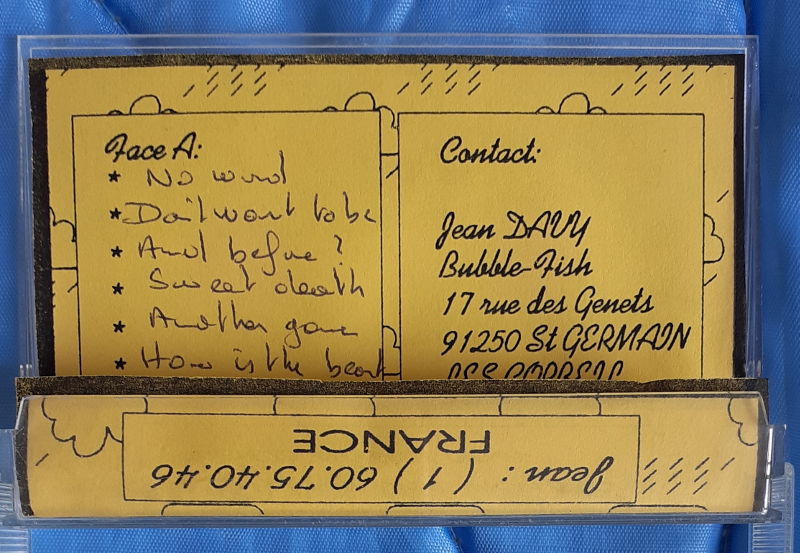 Face A:
* No wind
* Don't want to be
* And before ?
* Sweet death
* Another game
* How is the beast
Contact:
Jean DAVY
Bubble-Fish
17 rue des Genets
91250 St GERMAIN
LES CORBEIL
FRANCE
Jean : (1) 60.75.40.46